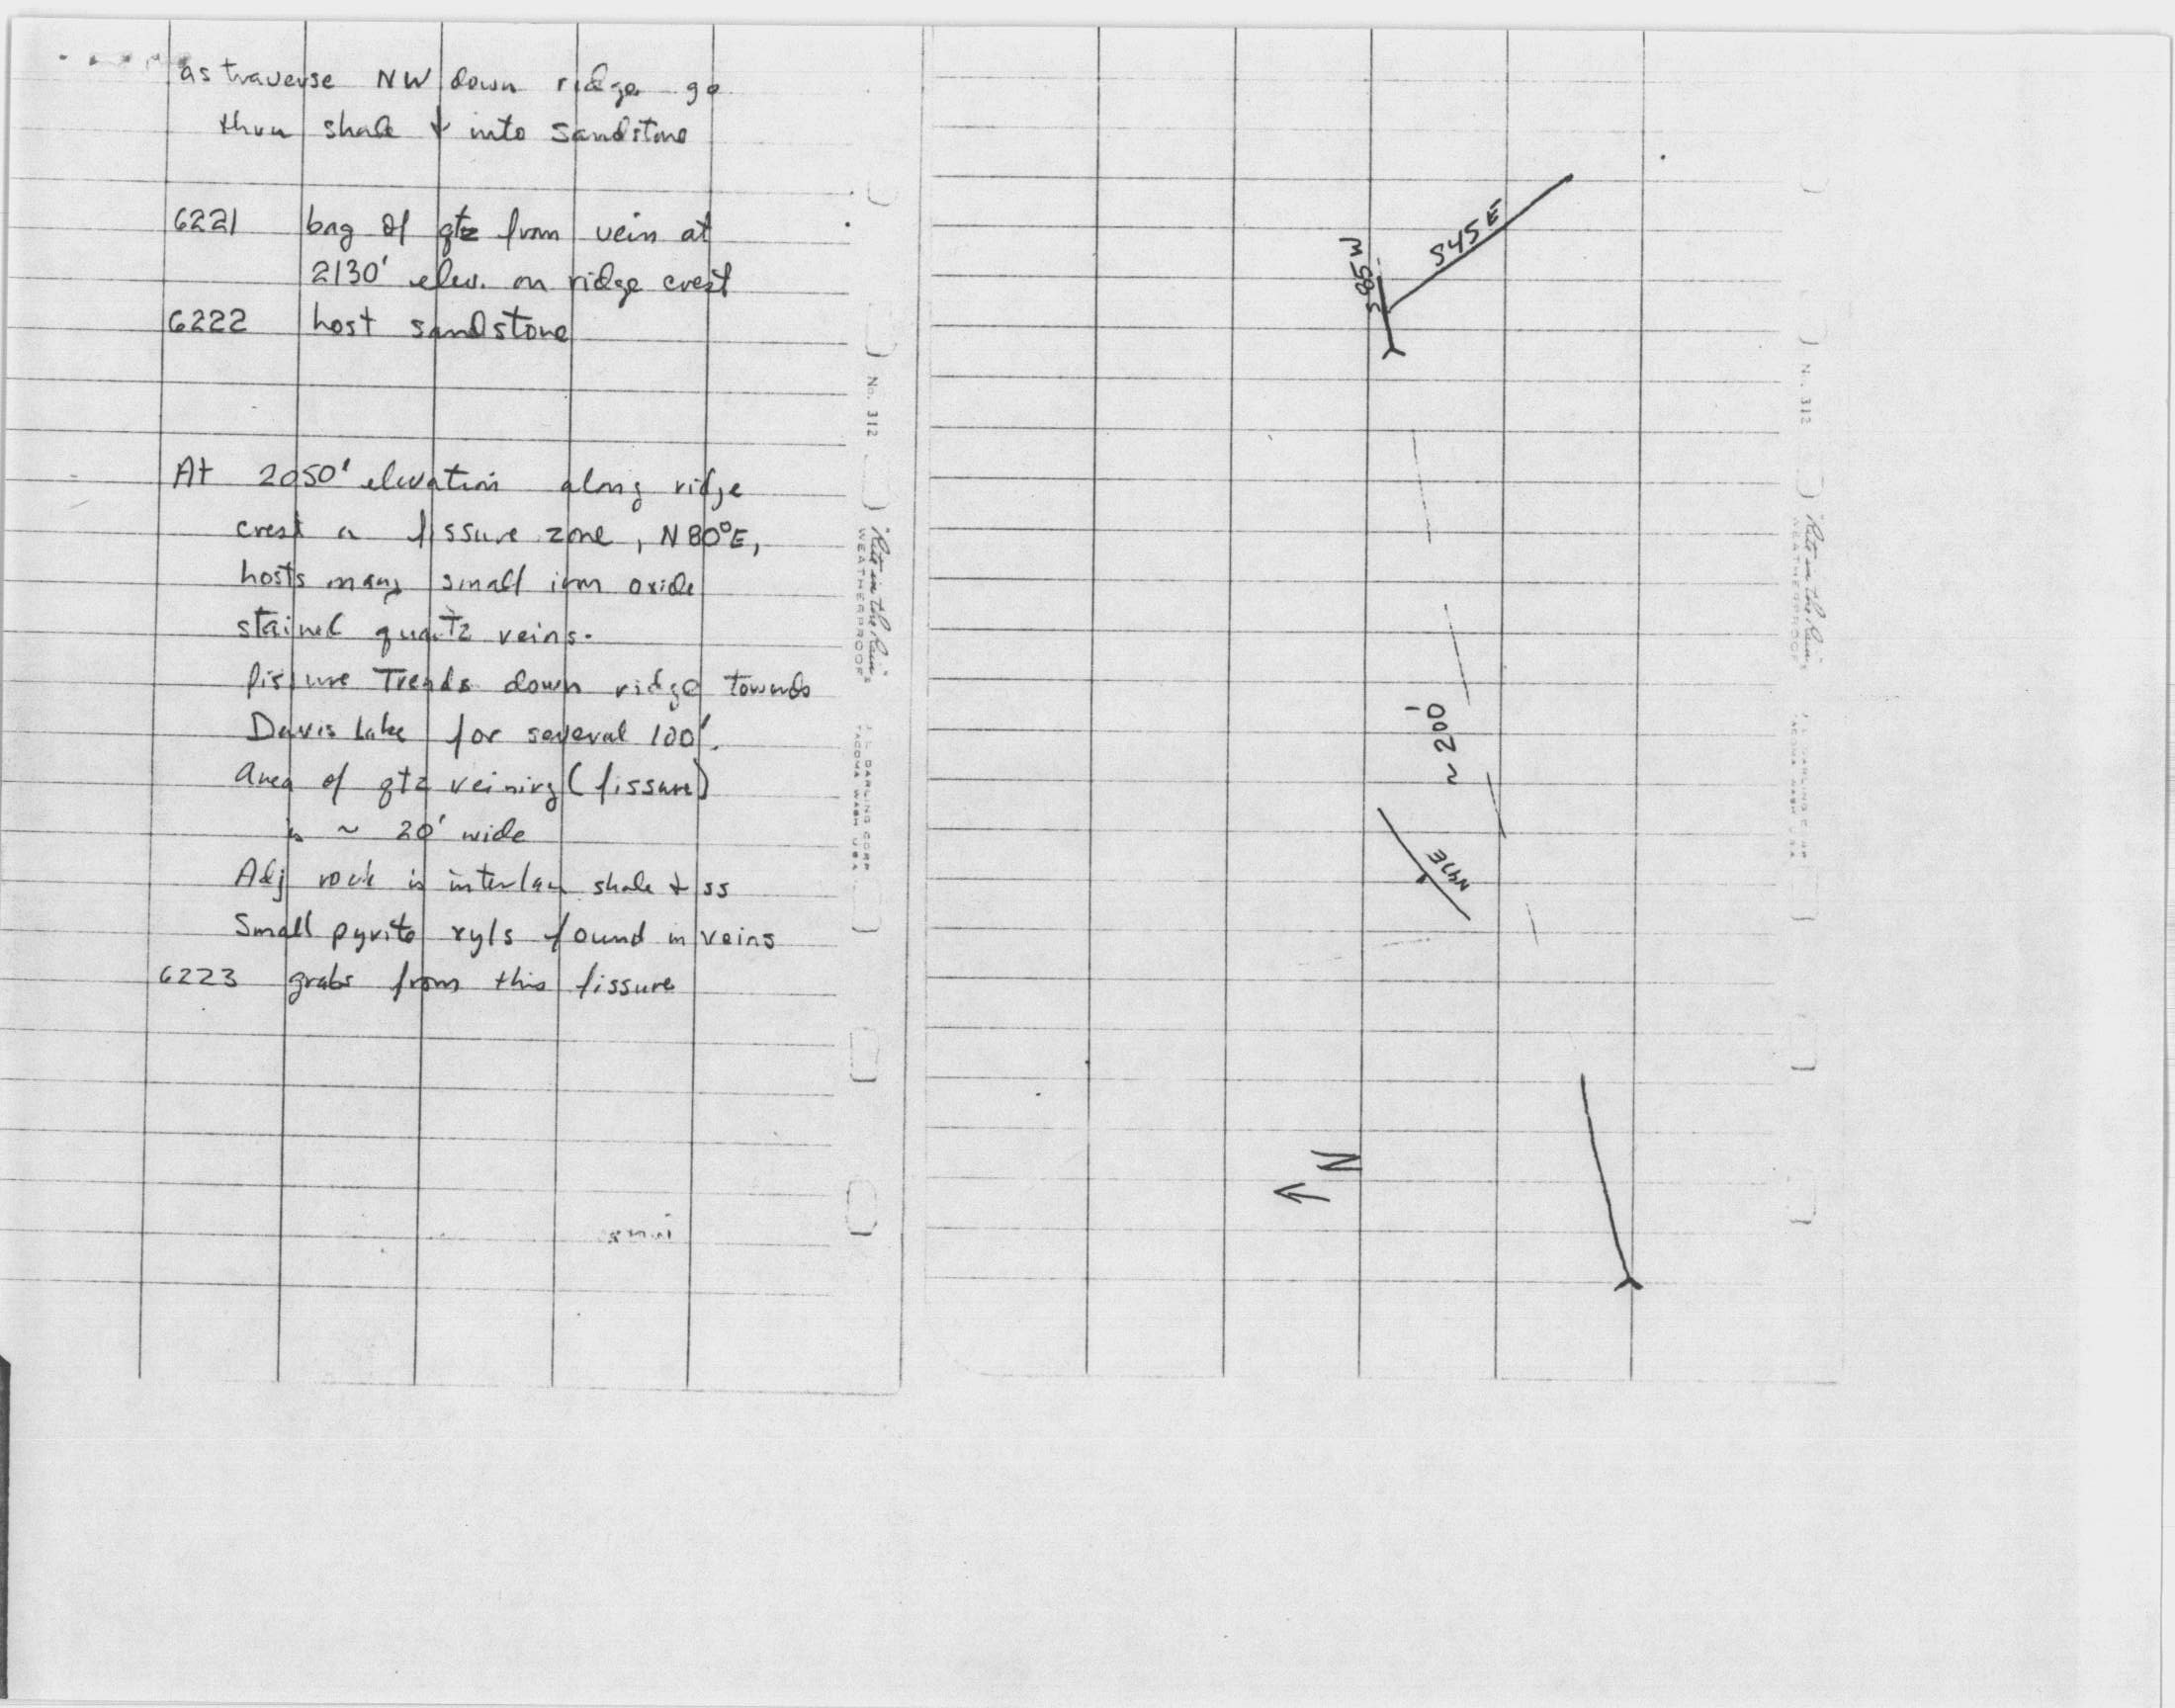 as traverse NW down ridge go
thru shale & into sandstone
6221 bag of qtz from vein at
2130' elev. on ridge crest
6222 host sandstone
At 2050' elevation along ridge
crest a fissure zone, N80°E,
hosts many small iron oxide
stained quartz veins.
fissure Trends down ridge towards
Davis Lake for several 100'.
Area of qtz veining (fissure)
is ~ 20' wide
Adj rock is interlam shale & ss
Small pyrite xyls found in veins
6223 grabs from this fissure
No. 312
"Rite in the Rain"
WEATHERPROOF
J. L. DARLING CORP
TACOMA WASH U.S.A.
S85W
S45E
~ 200'
N47E
N
No. 312
"Rite in the Rain"
WEATHERPROOF